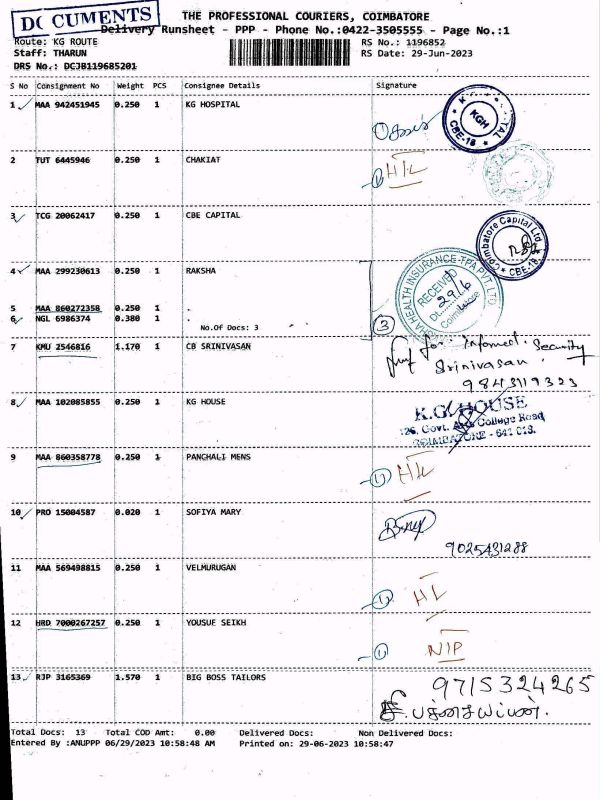 DOCUMENTS
THE PROFESSIONAL COURIERS, COIMBATORE
Delivery Runsheet - PPP - Phone No.:0422-3505555 - Page No.:1
Route: KG ROUTE RS No.: 1196852
Staff: THARUN RS Date: 29-Jun-2023
DRS No.: DCJB119685201
S No Consignment No Weight PCS Consignee Details Signature
1 MAA 942451945 0.250 1 KG HOSPITAL
KGH
CBE-18
2 TUT 6445946 0.250 1 CHAKIAT
1 H/L
3 TCG 20062417 0.250 1 CBE CAPITAL
Coimbatore Capital Ltd
CBE-18
4 MAA 299230613 0.250 1 RAKSHA
HEALTH INSURANCE-TPA PVT. LTD
RECEIVED
Dt. 29/6
Coimbatore
5 MAA 860272358 0.250 1 .
6 NGL 6986374 0.380 1 .
No.Of Docs: 3 3
7 KMU 2546816 1.170 1 CB SRINIVASAN
for Informed. Security
Srinivasan.
9843119323
8 MAA 102085855 0.250 1 KG HOUSE
K.G. HOUSE
126, Govt. Arts College Road
COIMBATORE - 641 018.
9 MAA 860358778 0.250 1 PANCHALI MENS
1 H/L
10 PRO 15004587 0.020 1 SOFIYA MARY
9025431288
11 MAA 569498815 0.250 1 VELMURUGAN
1 H/L
12 HRD 7000267257 0.250 1 YOUSUF SEIKH
1 NIP
13 RJP 3165369 1.570 1 BIG BOSS TAILORS
9715324265
Total Docs: 13 Total COD Amt: 0.00 Delivered Docs: Non Delivered Docs:
Entered By :ANUPPP 06/29/2023 10:58:48 AM Printed on: 29-06-2023 10:58:47